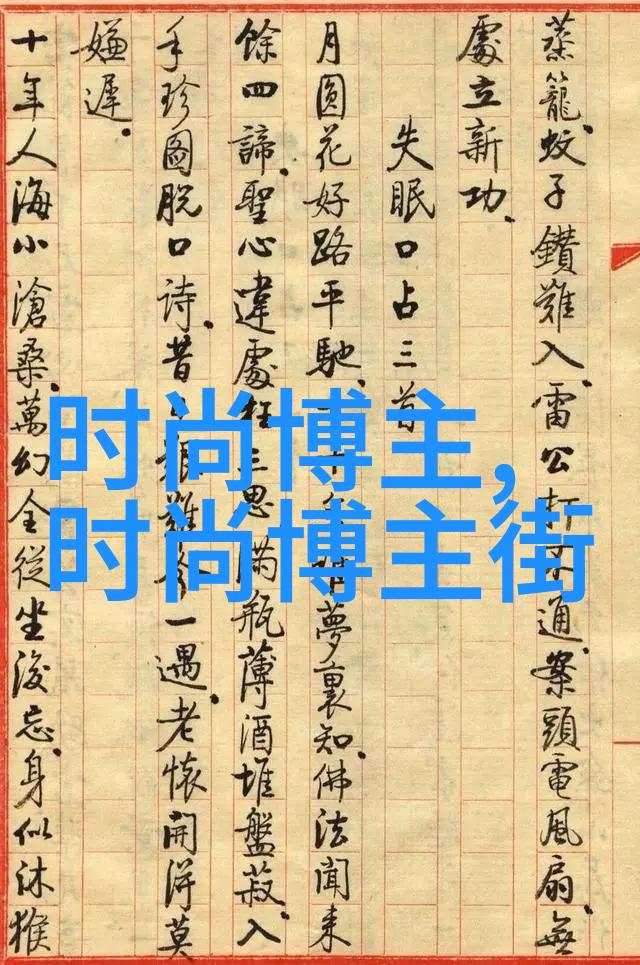 蒸籠蚊子鑽難入雷公打不通案頭電風扇無
處立新功
失眠口占三首
月圓花好路平馳 夢裏知佛法聞来
餘四諦聖心違處 三思滿瓶薄酒堆盤菽入
手珍圖脫口詩昔 難今一遇老懷開得莫
嫌遲
十年人海小滄桑萬幻全從坐後忘身似沐猴
时尚博主,
时尚博主街